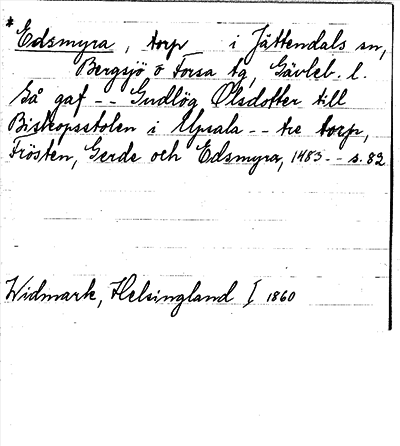 * Edsmyra, torp i Jättendals sn,
Bergsjö o Forsa tg, Gävleb. l.
Så gaf -- Gudlög Olsdotter till
Biskopsstolen i Upsala -- tre torp,
Frösten, Gerde och Edsmyra, 1483 -- s. 82
Widmark, Helsingland I 1860